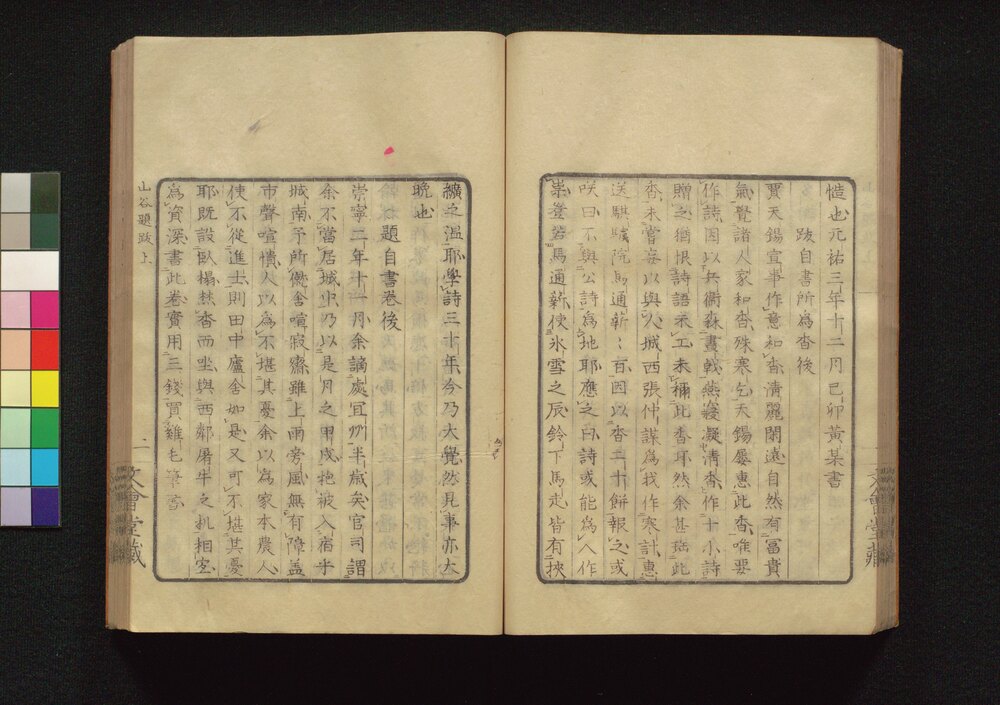 愷也元祐三年十二月己卯黃某書
跋自書所為香後
賈天錫宣事作意和香清麗閑遠自然有富貴
氣覺諸人家和香殊寒乞天錫屢惠此香唯要
作詩因以兵衛森畫戟燕寢凝清香作十小詩
贈之猶恨詩語未工未稱此香耳然余甚寶此
香未嘗妄以與人城西張仲謀為我作寒計惠
送騏驥院馬通薪二百因以香二十餅報之或
咲曰不與公詩為地耶應之曰詩或能為人作
祟豈若馬通薪使氷雪之辰鈴下馬走皆有挾
纊之温耶學詩三十年今乃大覺然見事亦太
晩也
題自書卷後
崇寧二年十一月余謫處宜州半歳矣官司謂
余不當居城中乃以是月之甲戌抱被入宿乎
城南予所僦舍喧寂齋雖上雨旁風無有障蓋
市聲喧憒人以為不堪其憂余以為家本農人
使不從進士則田中廬舍如是又可不堪其憂
耶既設臥榻焚香而坐與西鄰屠牛之机相直
為資深書此卷實用三錢買雞毛筆書
山谷題跋上
二
文會堂藏
文會堂藏